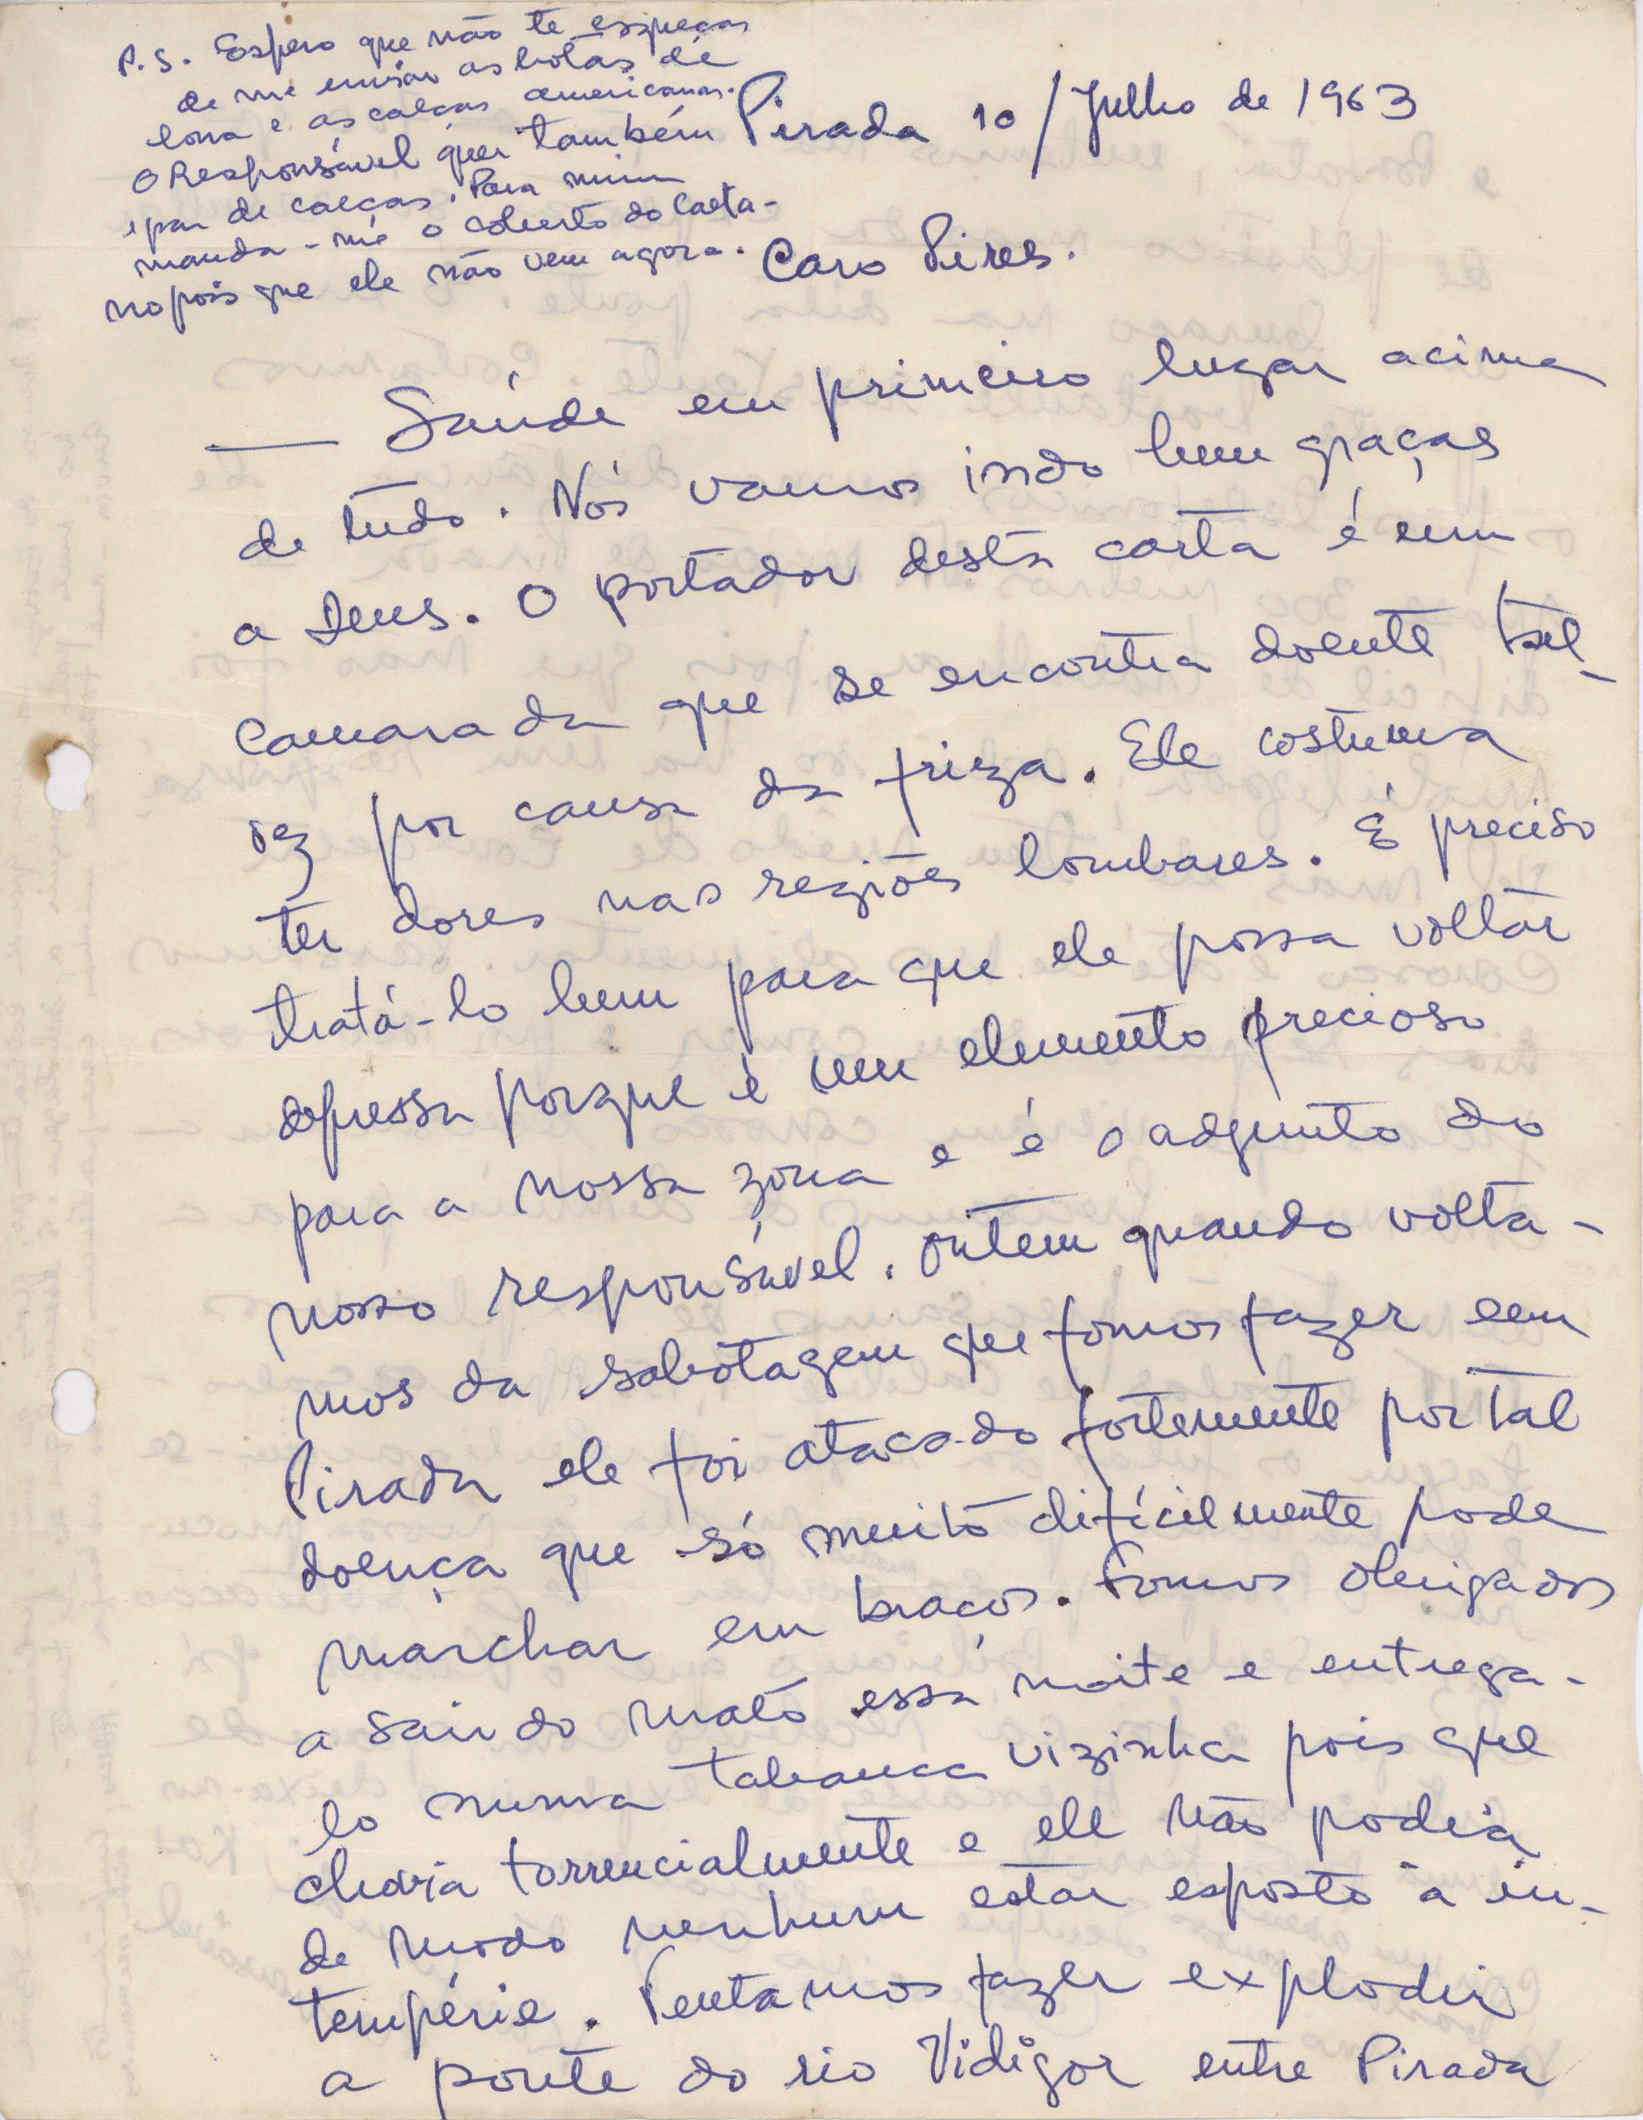 P.S. Espero que não te esqueças
de me enviar as botas de
lona e as calças americanas.
O Responsável quer também
1 par de calças. Para mim
manda-me o coberto do Caeta-
no pois que ele não vem agora.
Pirada 10/Julho de 1963
Caro Pires.
— Saúde em primeiro lugar acima
de tudo. Nós vamos indo bem graças
a Deus. O portador desta carta é um
camarada que se encontra doente tal-
vez por causa da friza. Ele costuma
ter dores nas regiões lombares. É preciso
tratá-lo bem para que ele possa voltar
depressa porque é um elemento precioso
para a nossa zona e é o adjunto do
nosso responsável. Ontem quando volta-
mos da sabotagem que fomos fazer em
Pirada ele foi atacado fortemente por tal
doença que só muito difícilmente pode
marchar em braços. Fomos obrigados
a sair do mato essa noite e entrega-
lo numa tabanca vizinha pois que
chovia torrencialmente e ele não podia
de modo nenhum estar esposto à in-
tempérie. Tentamos fazer explodir
a ponte do rio Vidigor entre Pirada